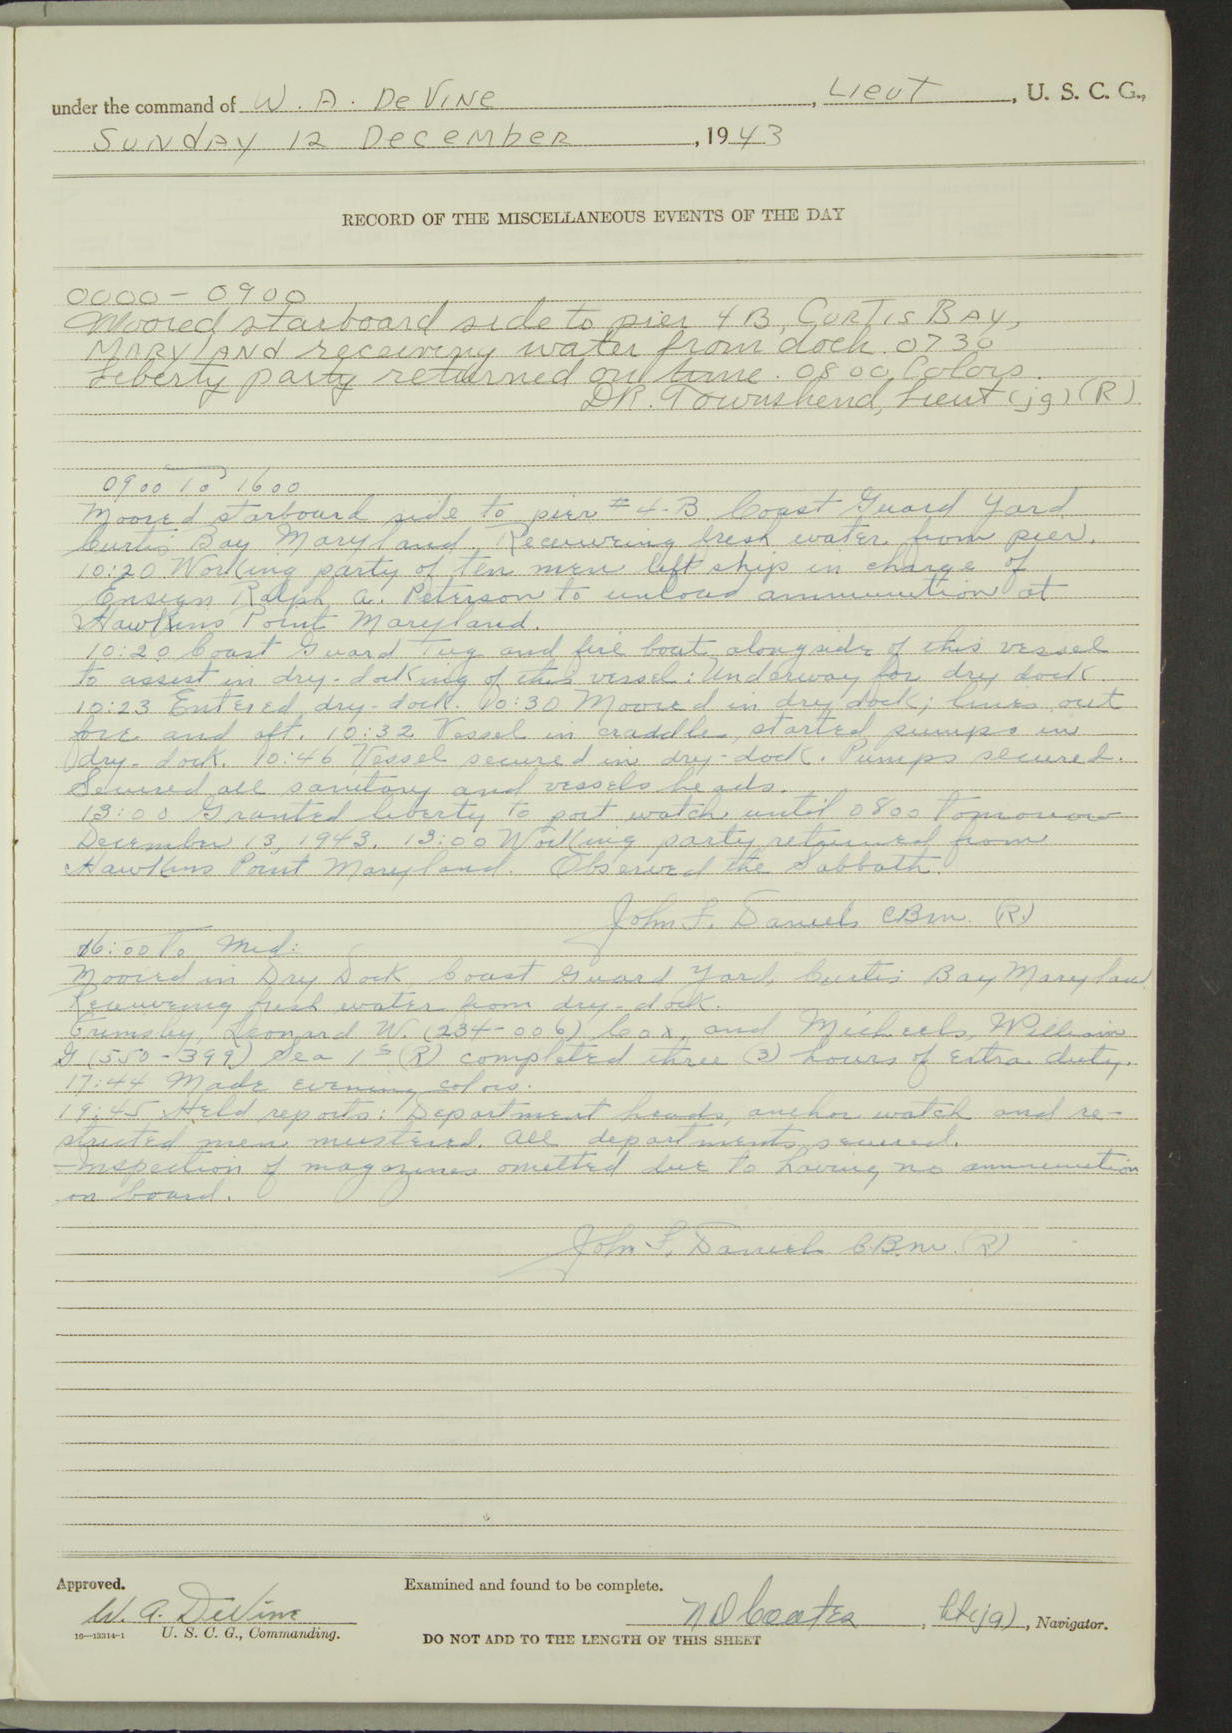 under the command of W. A. DeVine, Lieut, U. S. C. G.,
Sunday 12 December, 1943
RECORD OF THE MISCELLANEOUS EVENTS OF THE DAY
0000 - 0900
Moored starboard side to pier 4B, Curtis Bay,
Maryland receiving water from dock. 0730
Liberty party returned on time. 0800 Colors.
D.R. Townshend, Lieut (jg) (R)
0900 To 1600
Moored starboard side to pier # 4-B Coast Guard Yard
Curtis Bay Maryland. Receiveing fresh water from pier.
10:20 Working party of ten men left ship in charge of
Ensign Ralph A. Peterson to unload ammunition at
Hawkins Point Maryland.
10:20 Coast Guard Tug and fire boat alongside of this vessel
to assist in dry-docking of this vessel: Underway for dry dock.
10:23 Entered dry-dock. 10:30 Moored in dry dock; lines out
fore and aft. 10:32 Vessel in craddle, started pumps in
dry-dock. 10:46 Vessel secured in dry-dock. Pumps secured.
Secured all sanitary and vessels heads.
13:00 Granted liberty to port watch until 0800 Tomorrow
December 13, 1943. 13:00 Working party returned from
Hawkins Point Maryland. Observed the Sabbath.
John F. Daniels CBM. (R.)
16:00 To Mid:
Moored in Dry Dock Coast Guard Yard, Curtis Bay Maryland
Receiveing fresh water from dry-dock.
Leonard W. (234-006) Cox, and Micheels, William
G (550-399) Sea 1s (R) completed three (3) hours of extra duty.
17:44 Made evening colors.
19:45 Held reports: Department heads, anchor watch and re-
stricted men mustered. All departments secured.
Inspection of magazines omitted due to having no ammunition
on board.
John F. Daniels C.B.M. (R)
Approved. Examined and found to be complete.
W. A. DeVine N D Coates, Lt(jg), Navigator.
16—13314-1 U. S. C. G., Commanding.
DO NOT ADD TO THE LENGTH OF THIS SHEET